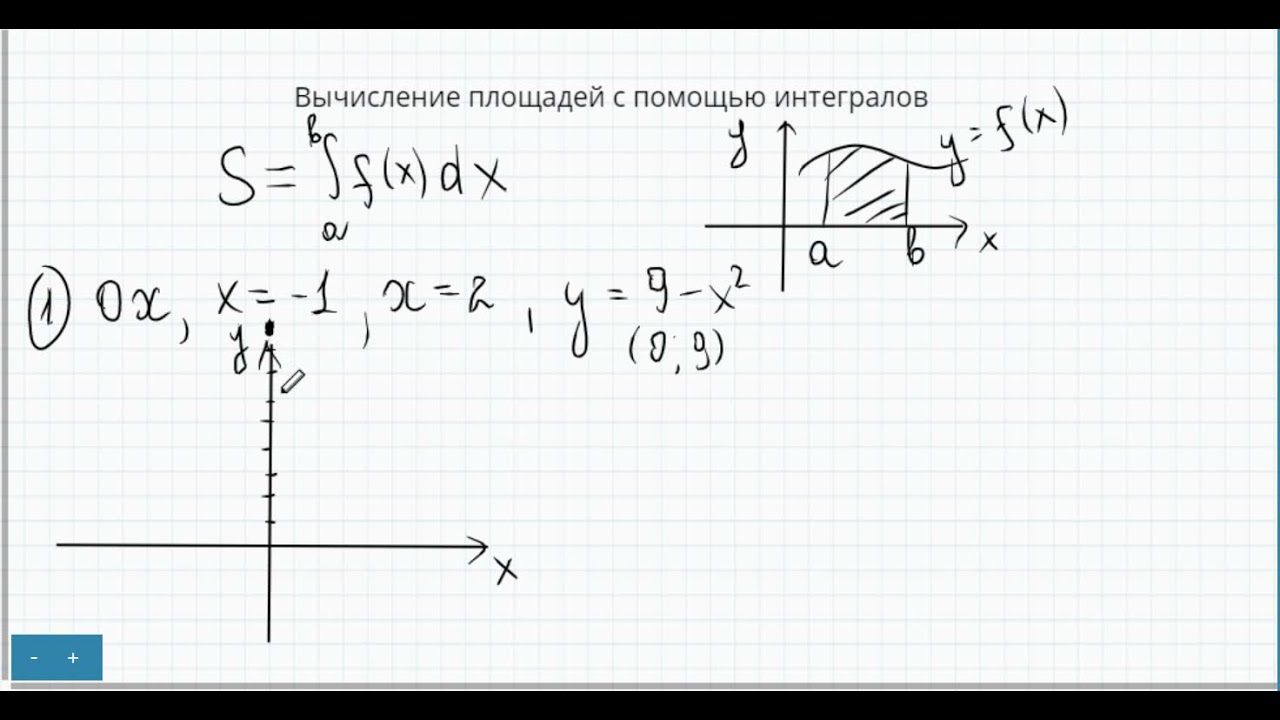 Вычисление площадей с помощью интегралов
S = ∫ₐᵇ f(x) dx
y
y = f(x)
a b x
① Ox, x = -1, x = 2, y = 9 - x²
(0; 9)
y
x
- +